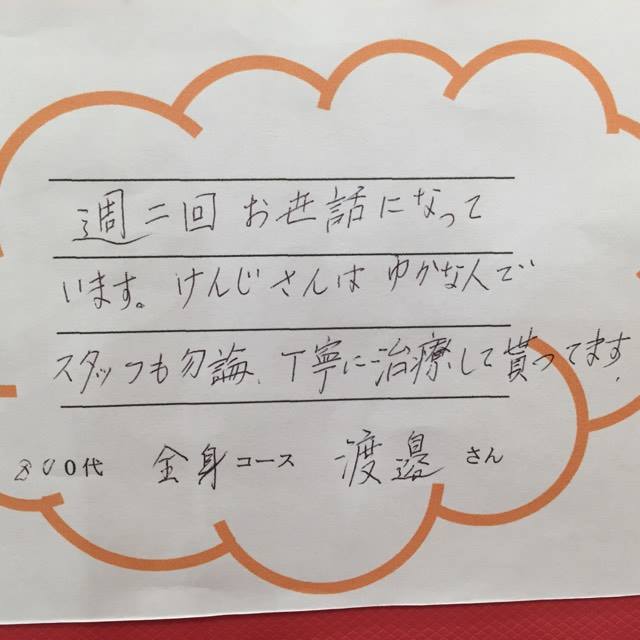 週二回 お世話になって
います。けんじさんは ゆかなんで
スタッフも勿論、丁寧に治療して貰ってます。
80代 全身コース 渡邉さん